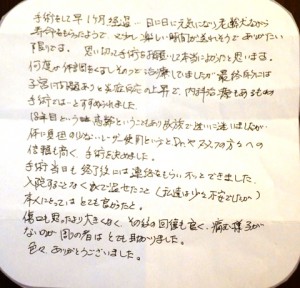 手術をして早1ヶ月経過…日に日に元気になり老齢犬ながら
寿命をもらったようで、これで楽しい時間が送れそうでありがたい
限りです。思い切って手術をお願いして本当によかったと思います。
何度か体調をくずしそのつど治療していましたが最終的には
子宮に炎症反応の上昇で、内科治療もあるものの
手術をとすすめられました。
13年目という高齢ということもあり家族で迷いに迷いましたが
体に負担の少ないレーザー使用というとDr.やスタッフの方々への
信頼も高く、手術を決めました。
手術当日も終了後には連絡をもらいホッとできました。
入院することなく家で過せたこと(夜通は少々不安でしたが)
本人にとってはとても良かったと。
傷口も思ったより大きくなくその後の回復も良く、痛む様子が
ないのが周りの者はとても助かりました。
色々ありがとうございました。